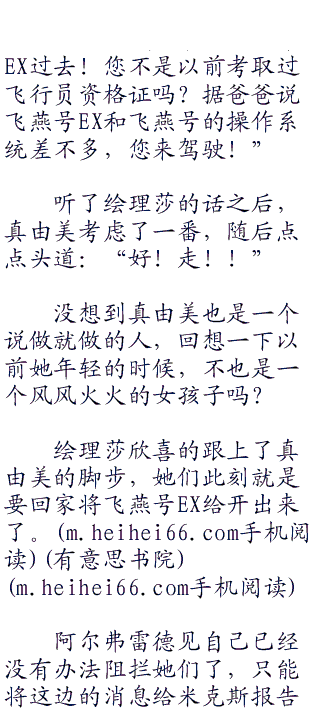 EX过去！您不是以前考取过
飞行员资格证吗？据爸爸说
飞燕号EX和飞燕号的操作系
统差不多，您来驾驶！”
听了绘理莎的话之后，
真由美考虑了一番，随后点
点头道：“好！走！！”
没想到真由美也是一个
说做就做的人，回想一下以
前她年轻的时候，不也是一
个风风火火的女孩子吗？
绘理莎欣喜的跟上了真
由美的脚步，她们此刻就是
要回家将飞燕号EX给开出来
了。(m.heihei66.com手机阅
读)(有意思书院)
(m.heihei66.com手机阅读)
阿尔弗雷德见自己已经
没有办法阻拦她们了，只能
将这边的消息给米克斯报告